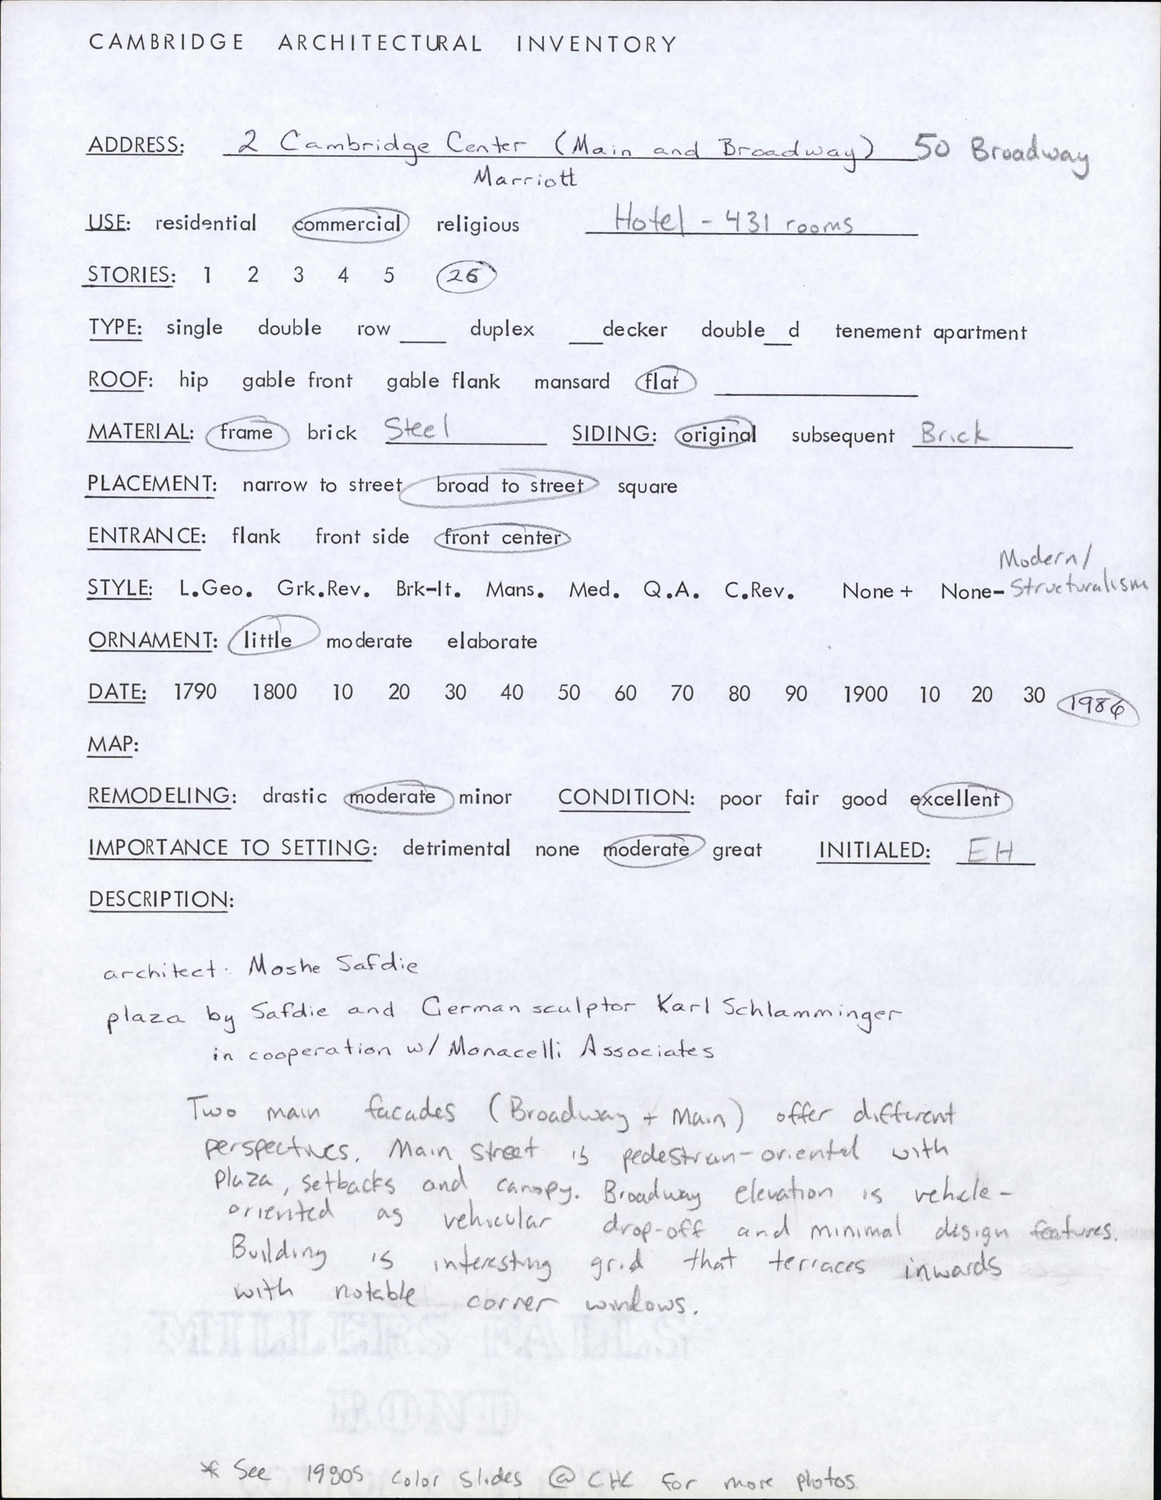 CAMBRIDGE ARCHITECTURAL INVENTORY
ADDRESS: 2 Cambridge Center (Main and Broadway) 50 Broadway
Marriott
USE: residential commercial religious Hotel - 431 rooms
STORIES: 1 2 3 4 5 26
TYPE: single double row ___ duplex ___decker double__d tenement apartment
ROOF: hip gable front gable flank mansard flat
MATERIAL: frame brick Steel SIDING: original subsequent Brick
PLACEMENT: narrow to street broad to street square
ENTRANCE: flank front side front center
Modern/
STYLE: L.Geo. Grk.Rev. Brk-It. Mans. Med. Q.A. C.Rev. None + None- Structuralism
ORNAMENT: little moderate elaborate
DATE: 1790 1800 10 20 30 40 50 60 70 80 90 1900 10 20 30 1986
MAP:
REMODELING: drastic moderate minor CONDITION: poor fair good excellent
IMPORTANCE TO SETTING: detrimental none moderate great INITIALED: EH
DESCRIPTION:
architect: Moshe Safdie
plaza by Safdie and German sculptor Karl Schlamminger
in cooperation w/ Monacelli Associates
Two main facades (Broadway + Main) offer different
perspectives. Main Street is pedestrian-oriental with
plaza, setbacks and canopy. Broadway elevation is vehicle-
oriented as vehicular drop-off and minimal design features.
Building is interesting grid that terraces inwards
with notable corner windows.
MILLERS FALLS
BOND
* See 1980s color slides @ CHC for more photos